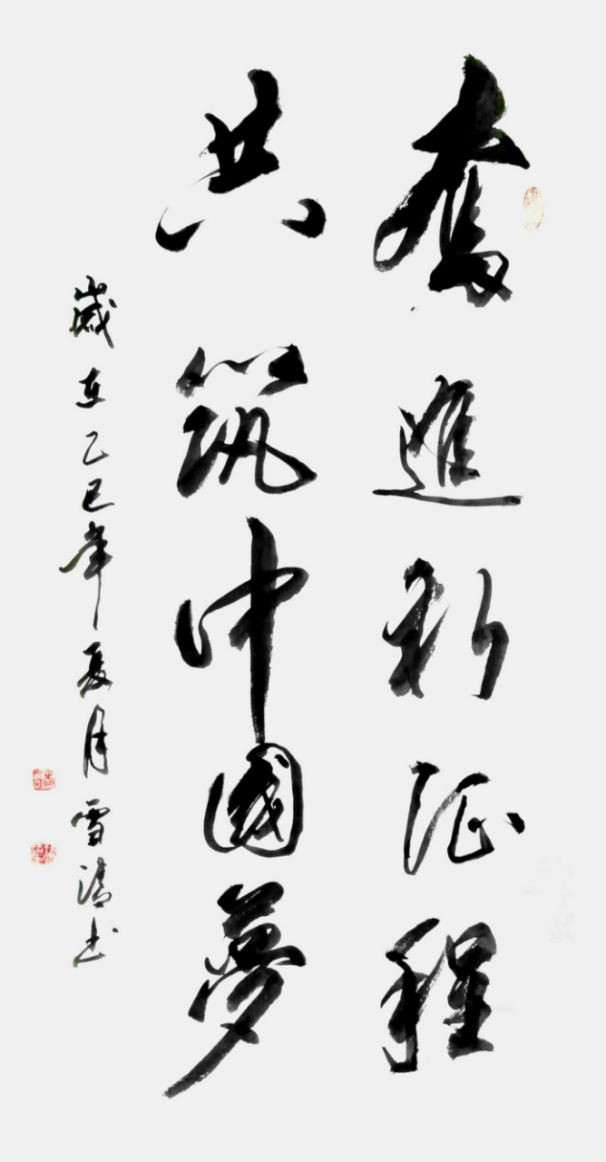 奮進新征程
共筑中國夢
歲在乙巳年夏月雪清书